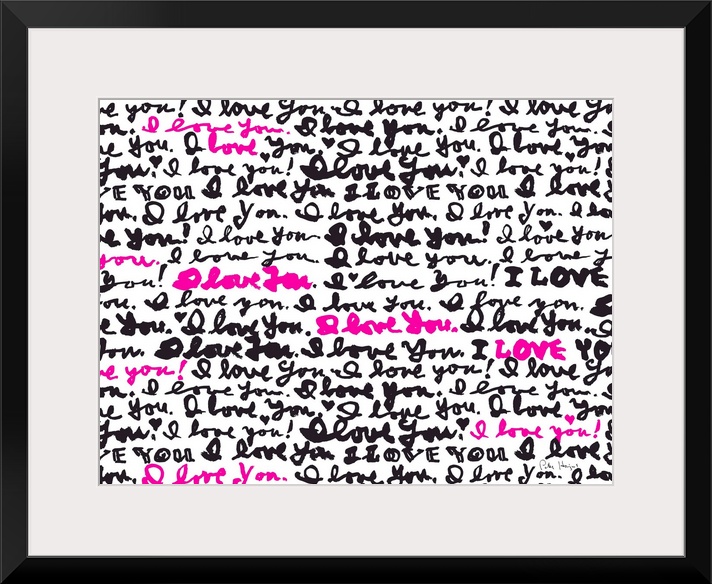 e you! I love you. I love you! I love yo
n. I love you. I love you. I love you. I lo
e you. I love you. I love you. I love you
you. I love you! I love you. I love you!
VE YOU I love you I LOVE YOU I love yo
you. I love you. I love you. I love you. I lo
e you! I love you I love you! I love you
you. I love you. I love you. I love you.
you! I love you. I love you! I LOVE
ou. I love you. I love you. I love you.
e you. I love you. I love you. I love you.
ou. I love you. I love you. I LOVE YO
e you! I love you. I love you! I love yo
n. I love you. I love you. I love you. I lo
e you. I love you. I love you. I love you
you. I love you! I love you. I love you!
VE YOU I love you I LOVE YOU I love yo
you. I love you. I love you. I love you. I lo